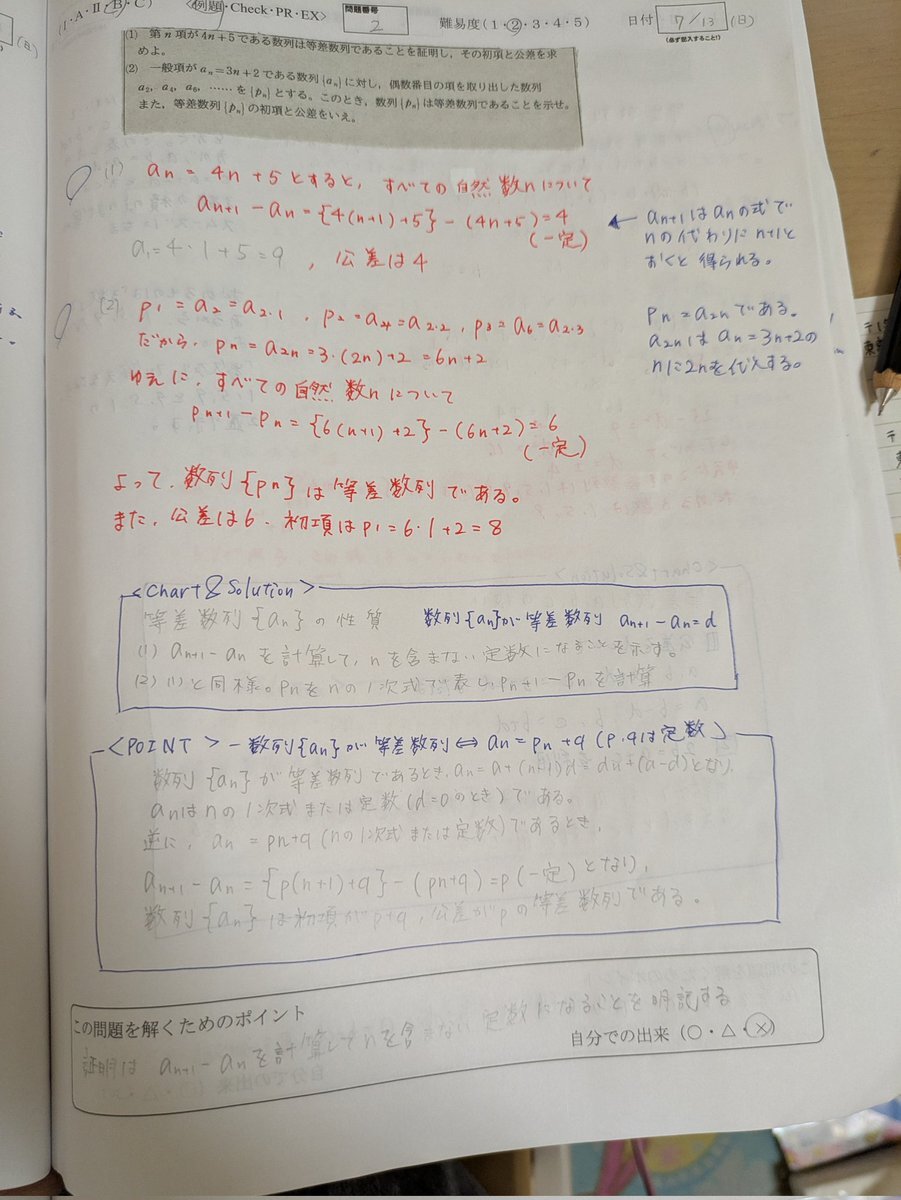 (Ⅰ・A・Ⅱ・B・C) <例題・Check・PR・EX> 問題番号 2 難易度(1・②・3・4・5) 日付 7/13 (日)
(必ず記入すること!)
(1) 第n項が4n+5である数列は等差数列であることを証明し,その初項と公差を求
めよ。
(2) 一般項が an=3n+2である数列{an}に対し,偶数番目の項を取り出した数列
a2, a4, a6, ……を{pn}とする。このとき,数列{pn}は等差数列であることを示せ。
また,等差数列{pn}の初項と公差をいえ。
(1) an = 4n+5とすると, すべての自然数nについて
an+1 - an = {4(n+1)+5} - (4n+5) = 4
(一定)
a1=4・1+5=9 , 公差は4
← an+1はanの式で
nの代わりにn+1と
おくと得られる。
(2) p1 = a2 = a2・1 , p2 = a4 = a2・2 , p3 = a6 = a2・3
だから, pn = a2n = 3・(2n)+2 = 6n+2
ゆえに, すべての自然数nについて
pn+1 - pn = {6(n+1)+2} - (6n+2) = 6
(一定)
pn = a2nである。
a2nは an=3n+2の
nに2nを代入する。
よって, 数列{pn}は等差数列である。
また, 公差は6. 初項はp1=6・1+2=8
<Chart&Solution>
等差数列{an}の性質 数列{an}が等差数列 an+1-an=d
(1) an+1-anを計算して, nを含まない定数になることを示す。
(2) (1)と同様。pnをnの1次式で表し, pn+1-pnを計算
<POINT> ー数列{an}が等差数列⇔ an=pn+q (p.qは定数)
数列{an}が等差数列であるとき, an=a+(n-1)d=dn+(a-d)となり,
anはnの1次式または定数(d=0のとき)である。
逆に, an=pn+q (nの1次式または定数)であるとき,
an+1-an={p(n+1)+q}-(pn+q)=p(一定)となり,
数列{an}は初項がp+q, 公差がpの等差数列である。
この問題を解くためのポイント
証明は an+1-anを計算してnを含まない定数になることを明記する
自分での出来(○・△・×)